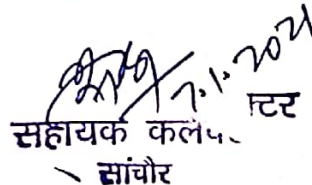 7.1.2021
सहायक कलेक्टर
सांचौर